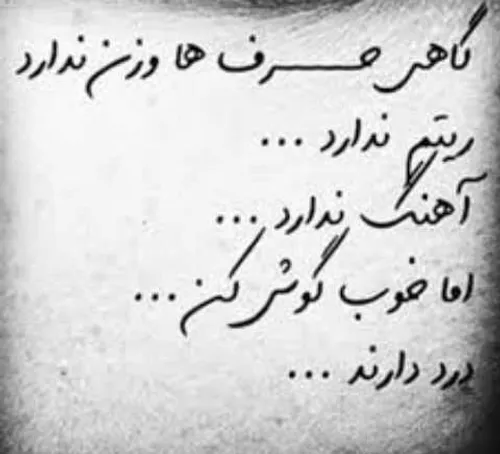 گاهی حرف ها وزن ندارد
ریتم ندارد ...
آهنگ ندارد ...
اما خوب گوش کن ...
درد دارند ...